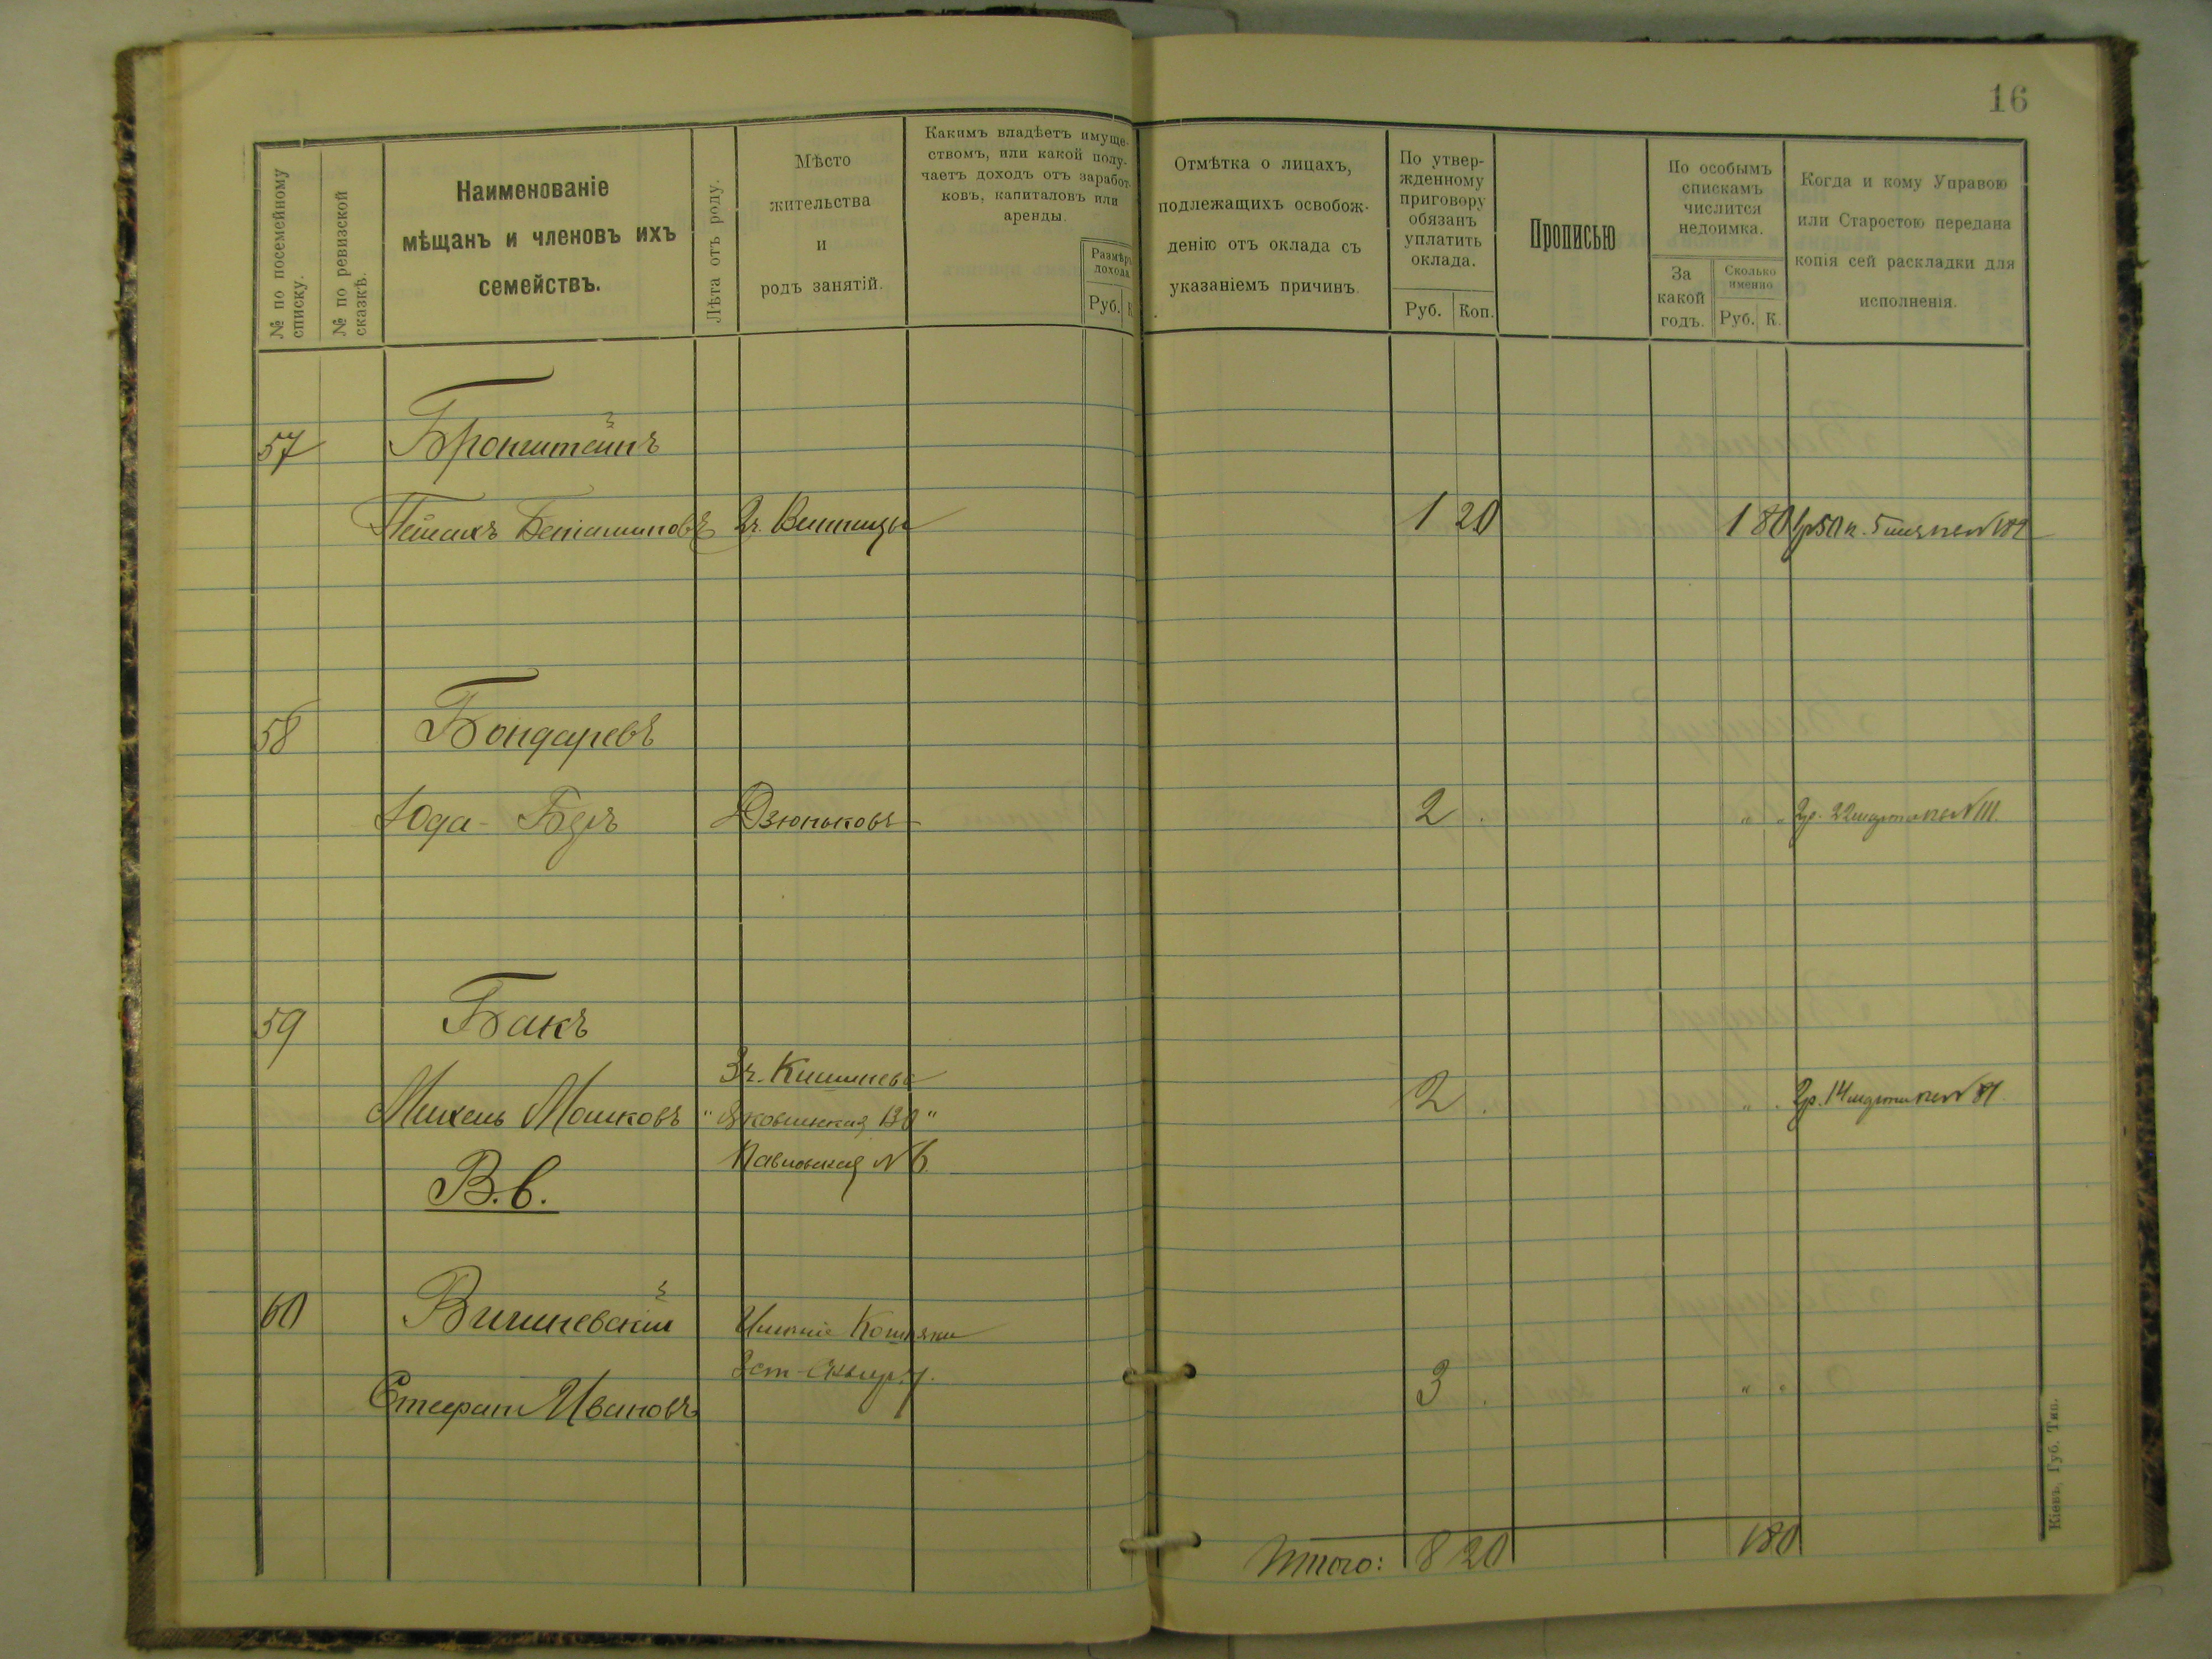 16
№ по посемейному списку.
№ по ревизской сказкѣ.
Наименованіе
мѣщанъ и членовъ ихъ
семействъ.
Лѣта отъ роду.
Мѣсто
жительства
и
родъ занятій.
Какимъ владѣетъ имуще-
ствомъ, или какой полу-
чаетъ доходъ отъ заработ-
ковъ, капиталовъ или
аренды.
Размѣръ
дохода
Руб. К
Отмѣтка о лицахъ,
подлежащихъ освобож-
денію отъ оклада съ
указаніемъ причинъ.
По утвер-
жденному
приговору
обязанъ
уплатить
оклада.
Руб. Коп.
Прописью
По особымъ
спискамъ
числится
недоимка.
За
какой
годъ.
Сколько
именно
Руб. К.
Когда и кому Управою
или Старостою передана
копія сей раскладки для
исполненія.
57 Бронштейнъ
Пейсахъ Беніаминовъ г. Винница 1 20 1 80 1р50к. 5 №182
58 Бондаревъ
Юда-Беръ Дзюньковъ 2 . " " 2р. 22 марта №111.
59 Бакъ
г. Кишиневъ
Михель Мошковъ 2 . " . 2р. 14 марта №81
Павловская № 6.
В.в.
60 Вишневскій Имѣніе
Стефанъ Ивановъ 3 . " "
Итого: 8 20 1 80
Кіевъ, Губ. Тип.